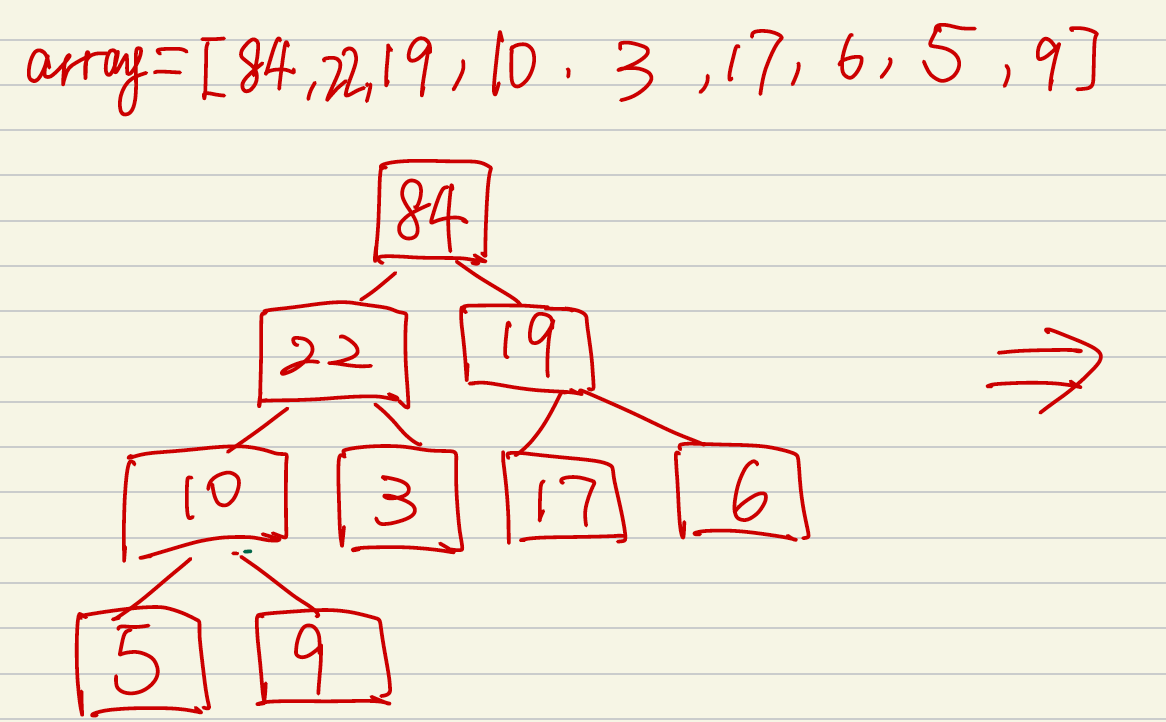 array=[84,22,19,10.3,17,6,5,9]
84
22 19
10 3 17 6
5 9